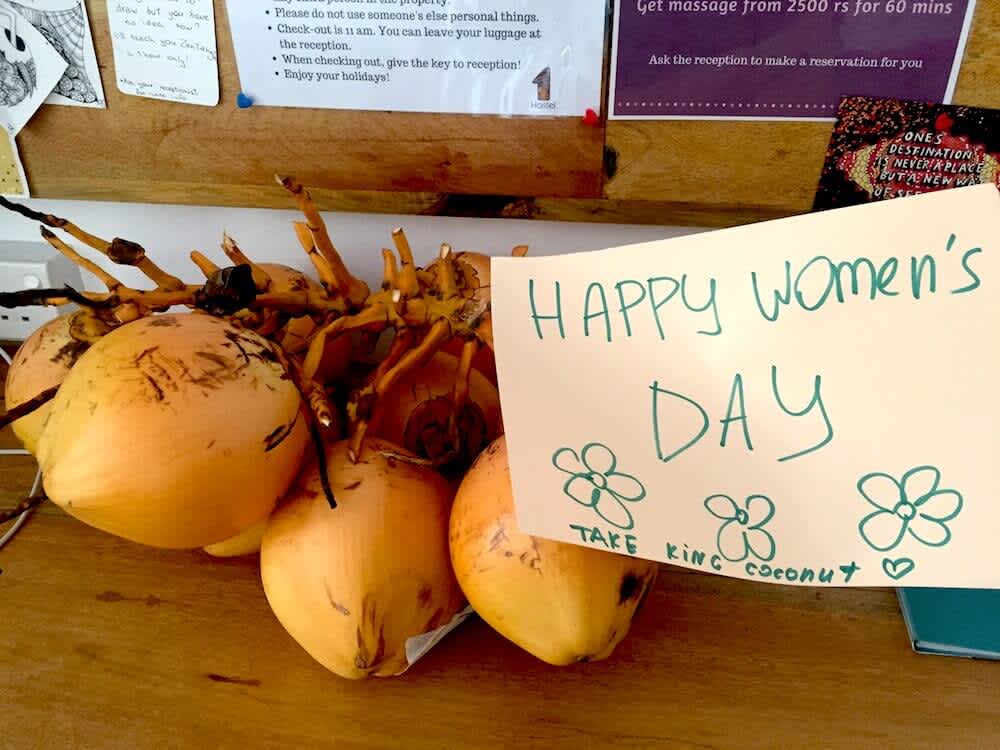 draw but you have
no idea how?
teach you Zentangle
show only!
your receptionist
any third person in the property.
• Please do not use someone's else personal things.
• Check-out is 11 am. You can leave your luggage at
the reception.
• When checking out, give the key to reception!
• Enjoy your holidays!
1
Hostel
Get massage from 2500 rs for 60 mins
Ask the reception to make a reservation for you
ONE'S
DESTINATION
IS NEVER A PLACE
BUT A NEW WA
OF SE
HAPPY Women's
DAY
TAKE KING COCONUT